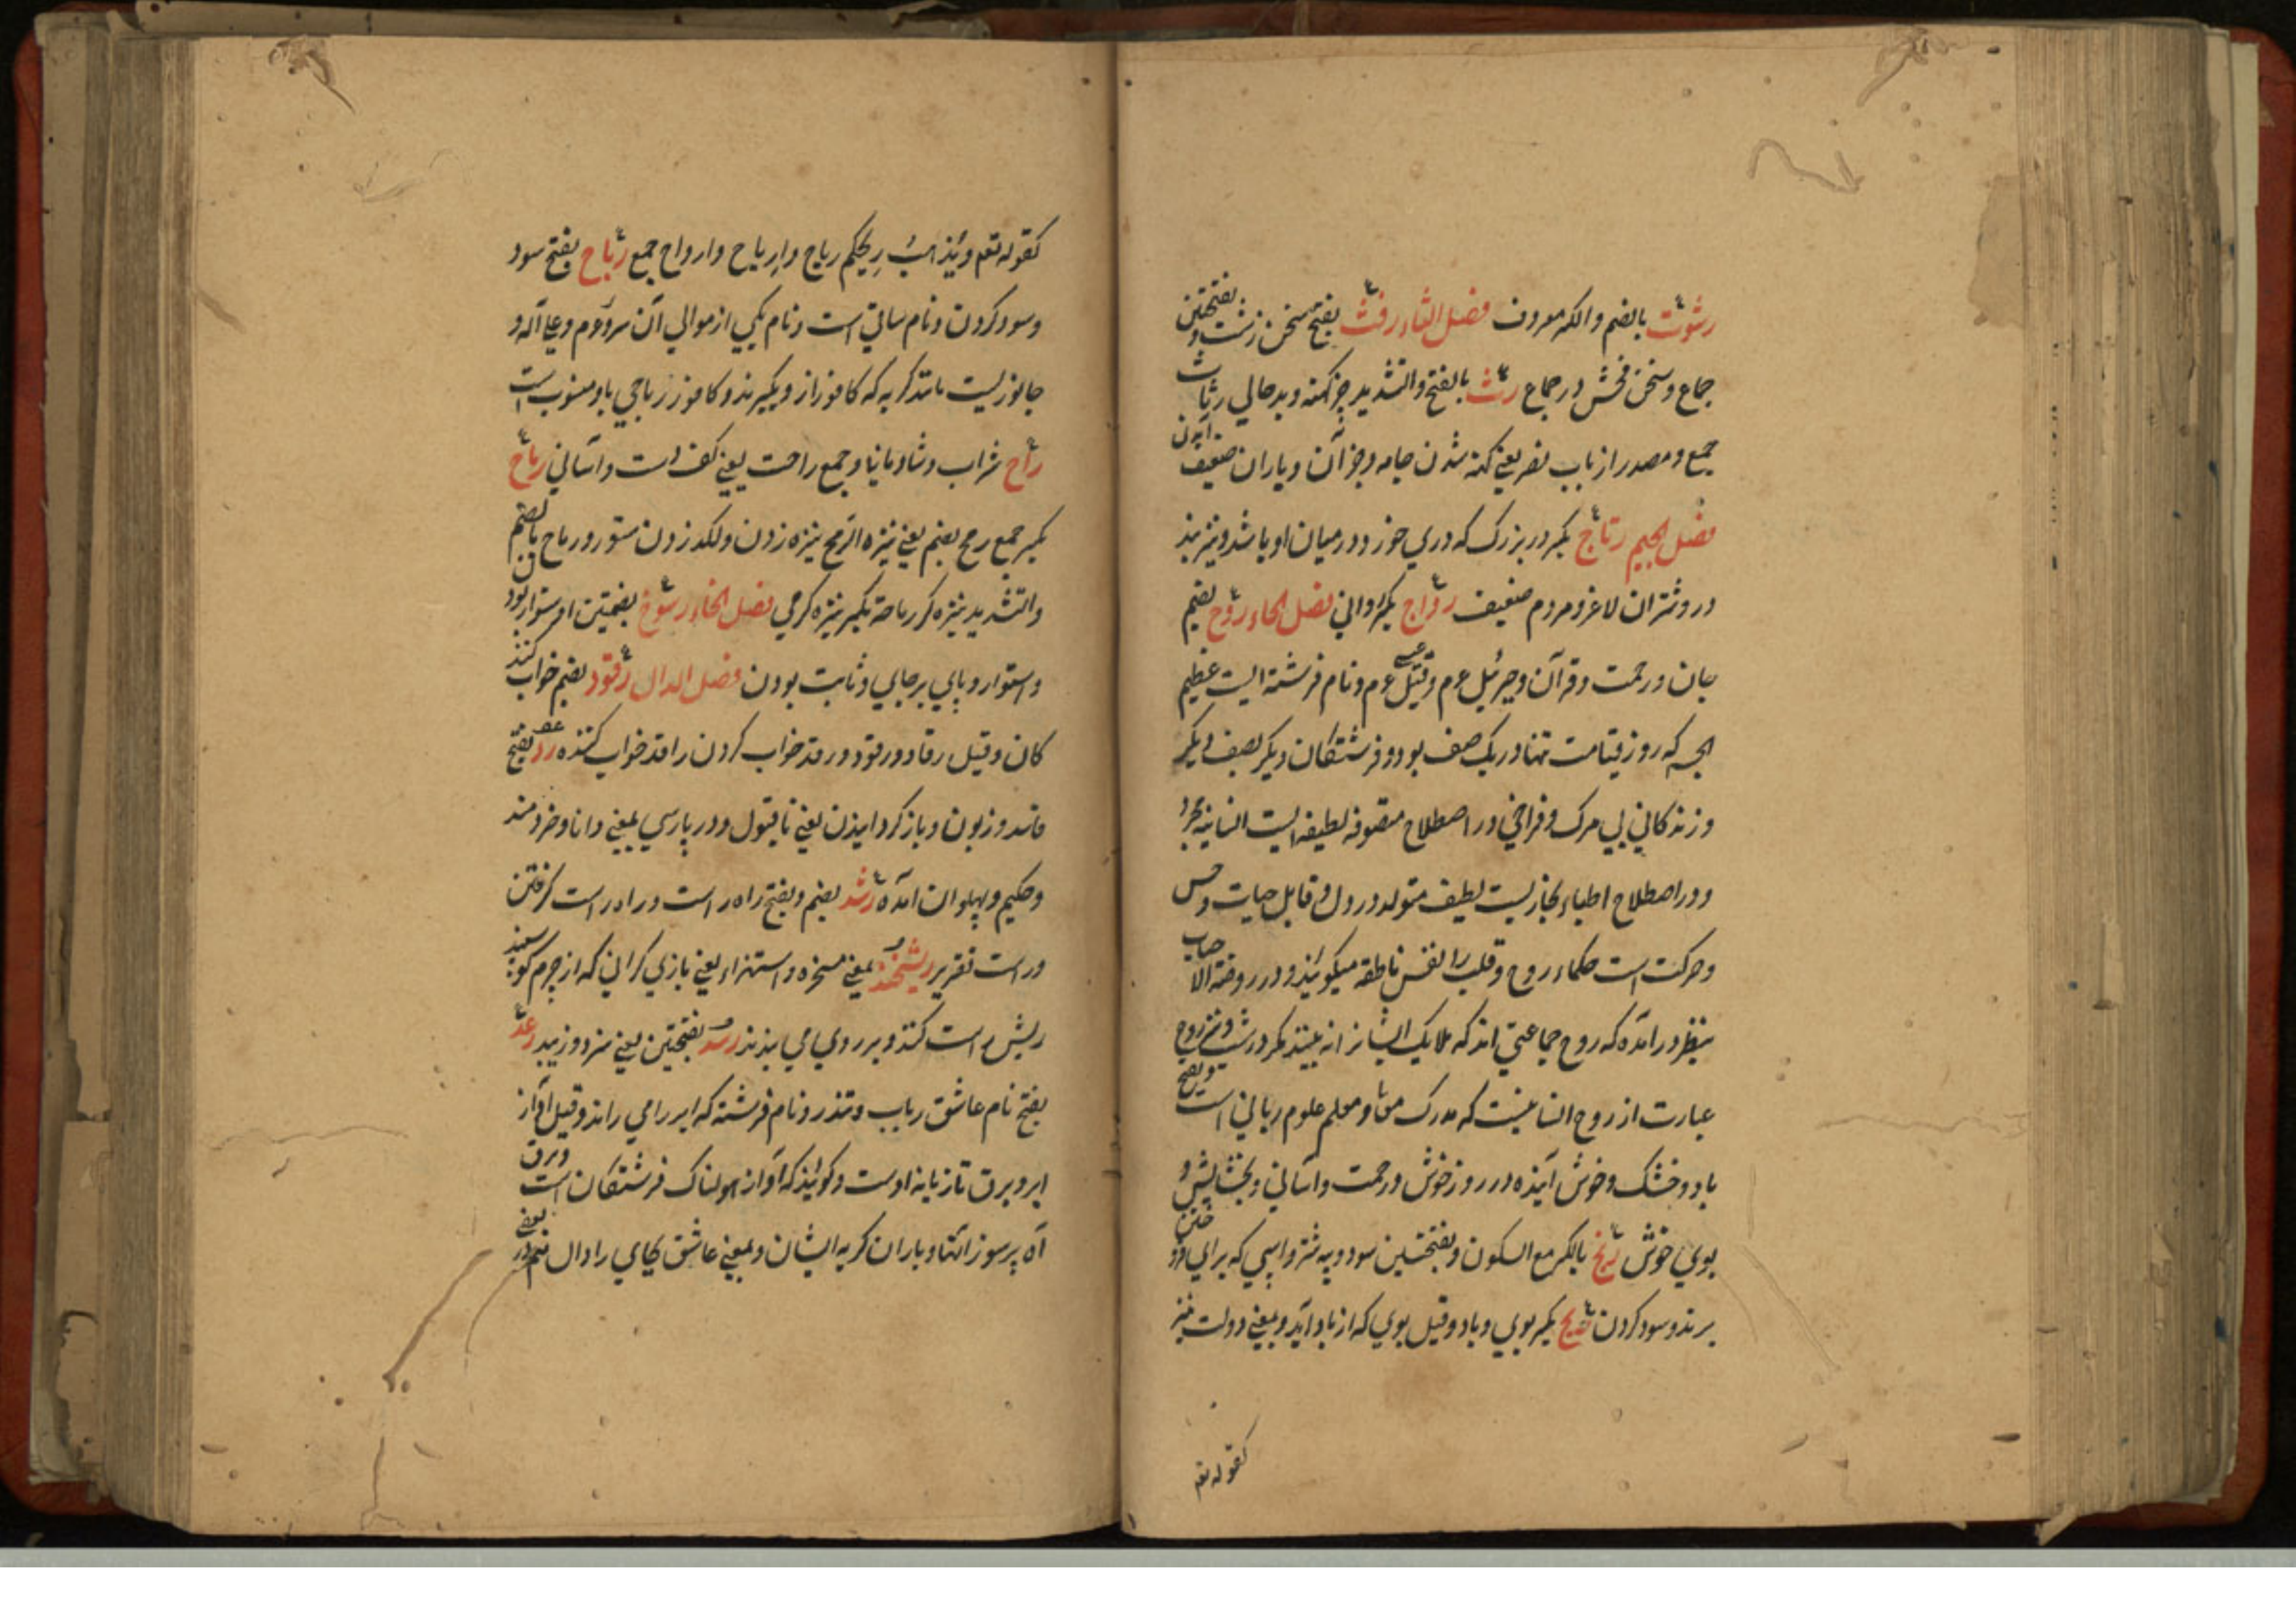 رشوت بالضم والکسر معروف فصل الثاء رفث بفتحتین سخن زشت و
جماع و سخن فحش در جماع رث بالفتح والتشدید چیز کهنه و بدحالی رثاث
جمع و مصدر از باب نصر یعنی کهنه شدن جامه و جز آن و یاران ضعیف
فصل الجیم رتاج بکسر در بزرک که دری خورد در میان او باشد و نیز بند
در و شتران لاغر و مردم ضعیف رواج بکسر روانی فصل الحاء روح بضم
جان و رحمت و قرآن و جبرئیل عم و قیل عیسی عم و نام فرشته ایست عظیم
الجسه که روز قیامت تنها در یک صف بود و فرشتکان دیکر بصف دیکر
و زندکانی بی مرک و فراخی و در اصطلاح متصوفه لطیفه ایست انسانیه مجرد
و در اصطلاح اطباء بخاریست لطیف متولد در دل و قابل حیات و حس
و حرکت است حکماء روح و قلب را نفس ناطقه میکویند و در روضة الاحباب
بنظر در آمده که روح جماعتی اند که ملایک ایشانرا نه بینند مکر در شب و نیز روح
عبارت از روح انسانیست که مدرک معانی و معلم علوم ربانی است و بفتح
باد و خشک و خوش آینده و روز خوش و رحمت و آسانی و بخشایش و
بوی خوش ربح بالکسر مع السکون و بفتحتین سود و بچه شتر و اسپی که برای فروختن
برند و سود کردن ریح بکسر بوی و باد و قیل بوی که از باد آید و بمعنی دولت نیز
کقوله تعم
کقوله تعم و یذهب ریحکم ریاح و اریاح و ارواح جمع رباح بفتح سود
و سود کردن و نام ساقی است و نام یکی از موالی آن سرور عم و علی آله و
جانوریست مانند کربه که کافور از وی کیرند و کافور رباحی باو منسوب است
راح شراب و شادمانیها و جمع راحت یعنی کف دست و آسانی رماح
بکسر جمع رمح بضم یعنی نیزه الرمح نیزه زدن و لکد زدن ستور و رماح بالضم
والتشدید نیزه کر رماحة بکسر نیزه کری فصل الخاء رسوخ بضمتین استوار بودن
و استوار و پای بر جای و ثابت بودن فصل الدال رقود بضم خواب کنند
کان و قیل رقاد و رقود و رقد خواب کردن راقد خواب کننده رد بفتح
فاسد و زبون و باز کردانیدن یعنی نا قبول و در پارسی بمعنی دانا و خردمند
و حکیم و پهلوان آمده رشد بضم و بفتح راه راست و راه راست کرفتن
و راست تقریر ریشخند بمعنی مسخره و استهزاء یعنی بازی کرانی که از چرم کوسپند
ریش راست کنند و بر روی می بندند رسد بفتحتین یعنی سزد و زیبد رعد
بفتح نام عاشق رباب و تندر و نام فرشته که ابر را می راند و قیل آواز
ابر و برق تازیانه اوست و کویند که آواز هولناک فرشتکان است و برق
آه پرسوز انتها و باران کریه ایشان و بمعنی عاشق بجای را دال نیم در بعضی